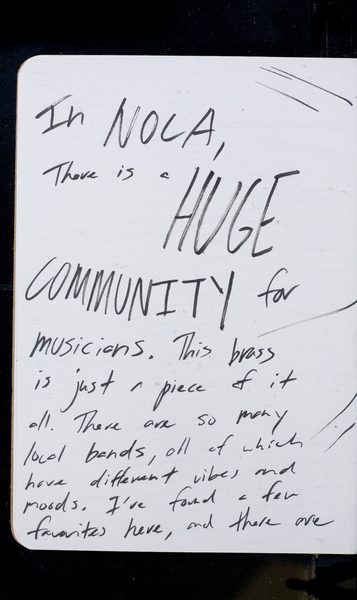 In NOLA,
There is a
HUGE
COMMUNITY for
musicians. This brass
is just a piece of it
all. There are so many
local bands, all of which
have different vibes and
moods. I've found a few
favorites here, and there are